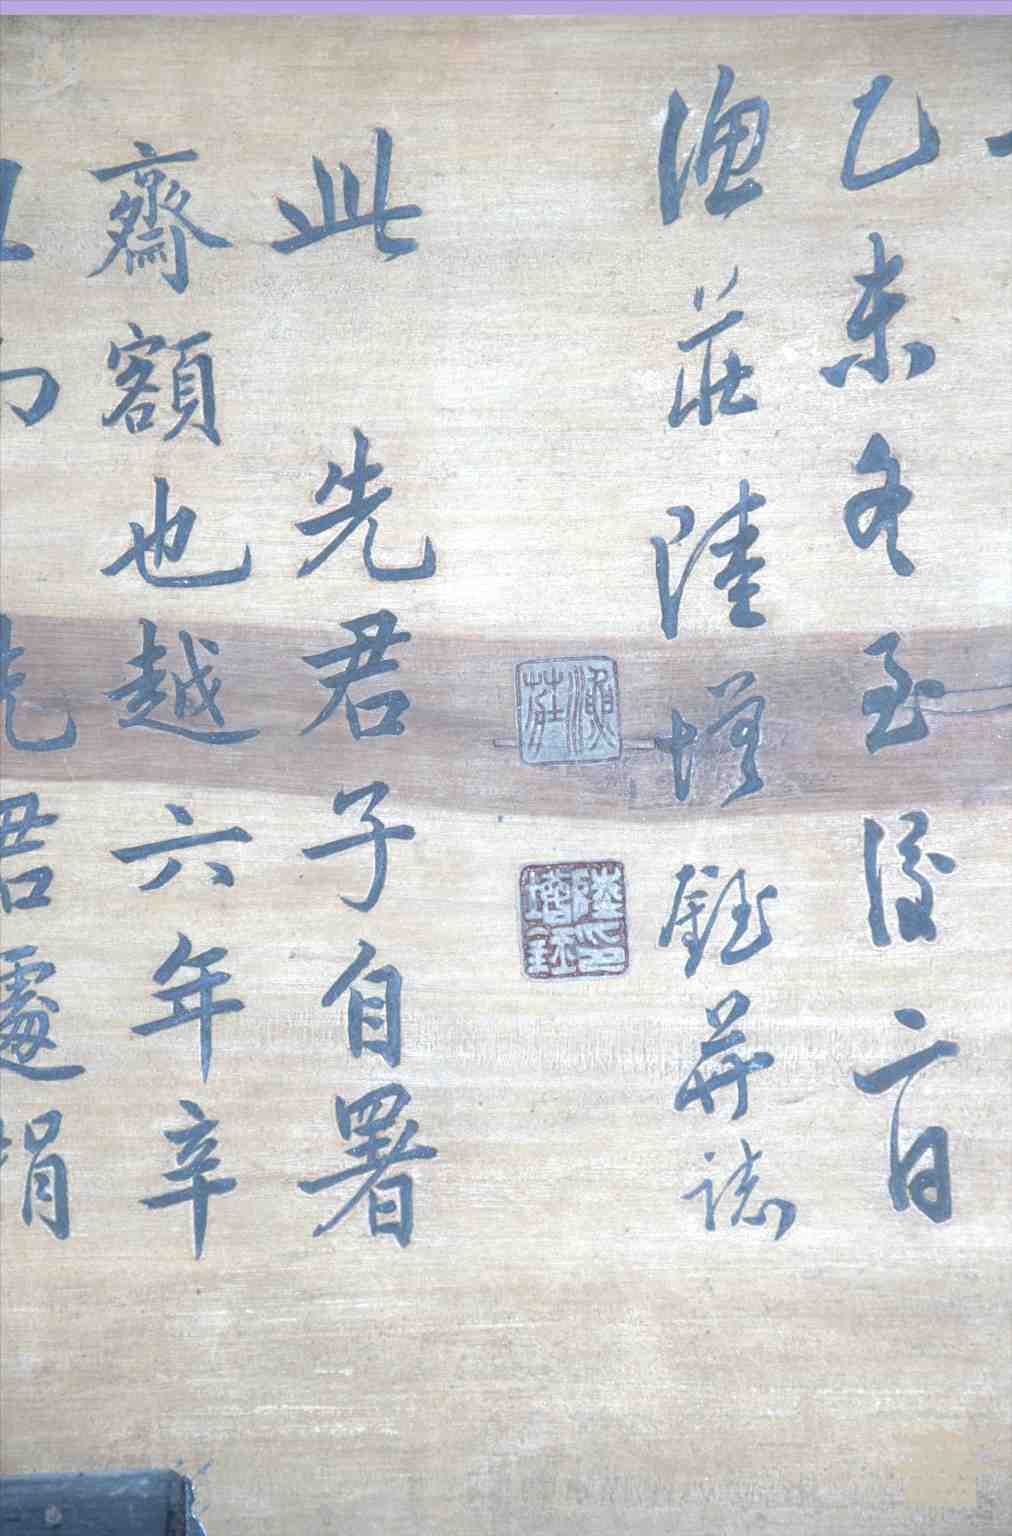 乙未冬至後二日
漁莊陸增鈺並誌
漁莊
陸增鈺印
此先君子自署
齋額也越六年辛
先君處捐